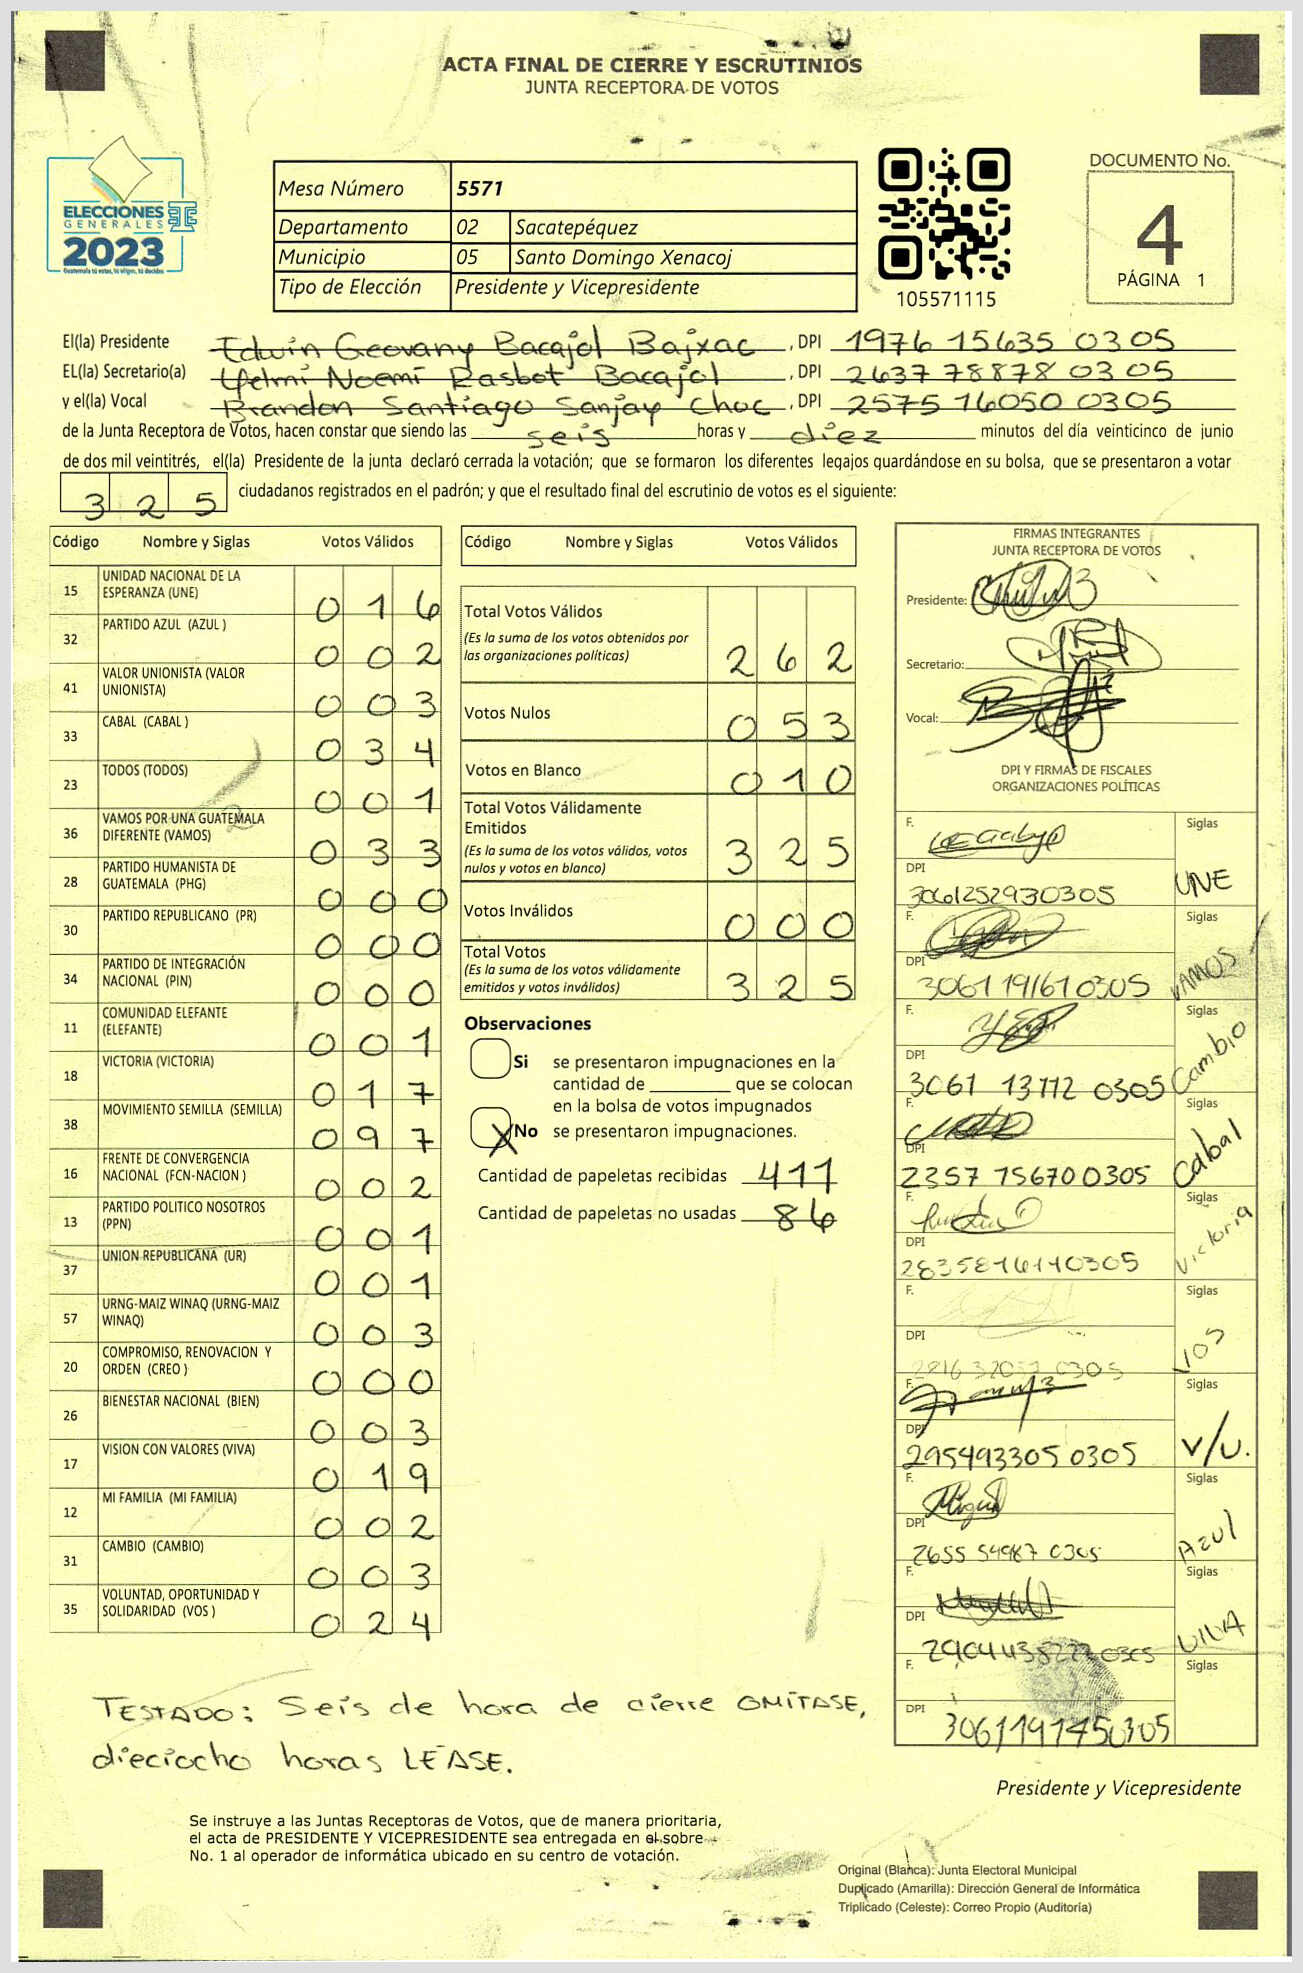 ACTA FINAL DE CIERRE Y ESCRUTINIOS
JUNTA RECEPTORA DE VOTOS
ELECCIONES
GENERALES
2023
Guatemala tú votas, tú eliges, tú decides
Mesa Número 5571
Departamento 02 Sacatepéquez
Municipio 05 Santo Domingo Xenacoj
Tipo de Elección Presidente y Vicepresidente
105571115
DOCUMENTO No.
4
PÁGINA 1
El(la) Presidente Edwin Geovany Bacajol Bajxac, DPI 1976 15635 0305
EL(la) Secretario(a) Yelmi Noemi Rasbot Bacajol, DPI 2637 78878 0305
y el(la) Vocal Brandon Santiago Sanjay Choc, DPI 2575 16050 0305
de la Junta Receptora de Votos, hacen constar que siendo las seis horas y diez minutos del día veinticinco de junio
de dos mil veintitrés, el(la) Presidente de la junta declaró cerrada la votación; que se formaron los diferentes legajos guardándose en su bolsa, que se presentaron a votar
325 ciudadanos registrados en el padrón; y que el resultado final del escrutinio de votos es el siguiente:
Código Nombre y Siglas Votos Válidos
15 UNIDAD NACIONAL DE LA ESPERANZA (UNE) 016
32 PARTIDO AZUL (AZUL ) 002
41 VALOR UNIONISTA (VALOR UNIONISTA) 003
33 CABAL (CABAL ) 034
23 TODOS (TODOS) 001
36 VAMOS POR UNA GUATEMALA DIFERENTE (VAMOS) 033
28 PARTIDO HUMANISTA DE GUATEMALA (PHG) 000
30 PARTIDO REPUBLICANO (PR) 000
34 PARTIDO DE INTEGRACIÓN NACIONAL (PIN) 000
11 COMUNIDAD ELEFANTE (ELEFANTE) 001
18 VICTORIA (VICTORIA) 017
38 MOVIMIENTO SEMILLA (SEMILLA) 097
16 FRENTE DE CONVERGENCIA NACIONAL (FCN-NACION ) 002
13 PARTIDO POLITICO NOSOTROS (PPN) 001
37 UNION REPUBLICANA (UR) 001
57 URNG-MAIZ WINAQ (URNG-MAIZ WINAQ) 003
20 COMPROMISO, RENOVACION Y ORDEN (CREO ) 000
26 BIENESTAR NACIONAL (BIEN) 003
17 VISION CON VALORES (VIVA) 019
12 MI FAMILIA (MI FAMILIA) 002
31 CAMBIO (CAMBIO) 003
35 VOLUNTAD, OPORTUNIDAD Y SOLIDARIDAD (VOS ) 024
Código Nombre y Siglas Votos Válidos
Total Votos Válidos 262
(Es la suma de los votos obtenidos por
las organizaciones políticas)
Votos Nulos 053
Votos en Blanco 010
Total Votos Válidamente
Emitidos 325
(Es la suma de los votos válidos, votos
nulos y votos en blanco)
Votos Inválidos 000
Total Votos 325
(Es la suma de los votos válidamente
emitidos y votos inválidos)
Observaciones
Si se presentaron impugnaciones en la
cantidad de ________ que se colocan
en la bolsa de votos impugnados
X No se presentaron impugnaciones.
Cantidad de papeletas recibidas 411
Cantidad de papeletas no usadas 86
FIRMAS INTEGRANTES
JUNTA RECEPTORA DE VOTOS
Presidente:
Secretario:
Vocal:
DPI Y FIRMAS DE FISCALES
ORGANIZACIONES POLÍTICAS
F. Siglas
DPI 3061252930305 UNE
F. Siglas
DPI 3061 19161 0305 VAMOS
F. Siglas
DPI 3061 13112 0305 Cambio
F. Siglas
DPI 2357 15670 0305 Cabal
F. Siglas
DPI 2835816140305 Victoria
F. Siglas
DPI VOS
F. Siglas
DPI 295493305 0305 V/U.
F. Siglas
DPI 2655 54987 0305 Azul
F. Siglas
DPI VIVA
F. Siglas
DPI 3061191450305
TESTADO: Seis de hora de cierre OMÍTASE,
dieciocho horas LÉASE.
Presidente y Vicepresidente
Se instruye a las Juntas Receptoras de Votos, que de manera prioritaria,
el acta de PRESIDENTE Y VICEPRESIDENTE sea entregada en el sobre
No. 1 al operador de informática ubicado en su centro de votación.
Original (Blanca): Junta Electoral Municipal
Duplicado (Amarilla): Dirección General de Informática
Triplicado (Celeste): Correo Propio (Auditoría)